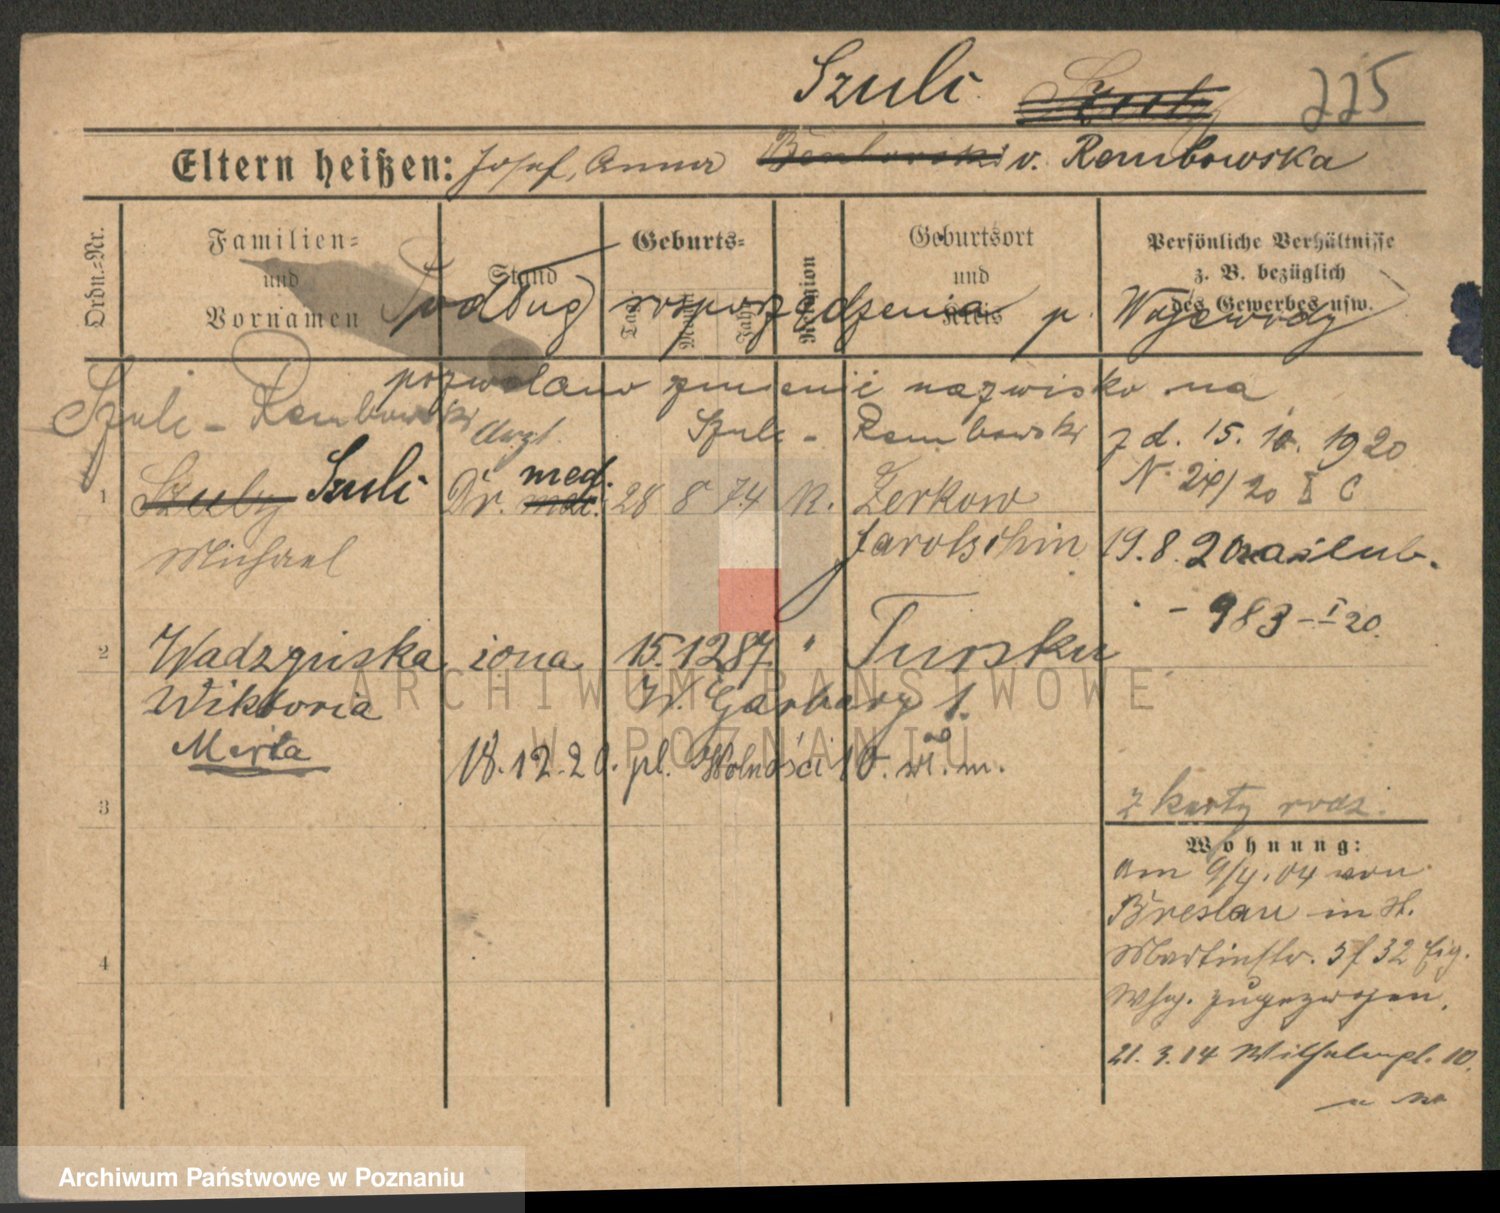 Szulc 225
Eltern heißen: Josef, Anna v. Rembowska
Ordn.=Nr.
Familien=
und
Vornamen
Stand
Geburts=
Tag
Monat
Jahr
Religion
Geburtsort
und
Kreis
Persönliche Verhältnisse
z. B. bezüglich
des Gewerbes usw.
Podług rozporządzenia p. Wojewody
pozwolano zmienić nazwisko na
Szulc - Rembowski z d. 15. 10. 1920
N. 24/20 I C
Szulc - Rembowski
1 Szulc Arzt Dr. med. 28 8 74 K. Zerkow
Michael Jarotschin
19.8.20 zaślub.
- 983 - I 20.
2 Wadzyńska żona 15.12 87 " Tursku
Wiktoria W. Garbary 1.
Marta 18.12.20. pl. Wolności 10. wł. m.
3
4
z karty rodz.
Wohnung:
am 9/4.04 von
Breslau in St.
Martinstr. 5 f 32 Eig.
Whg. zugezogen.
21.3.14 Wilhelmpl. 10.
ARCHIWUM PAŃSTWOWE
W POZNANIU
Archiwum Państwowe w Poznaniu